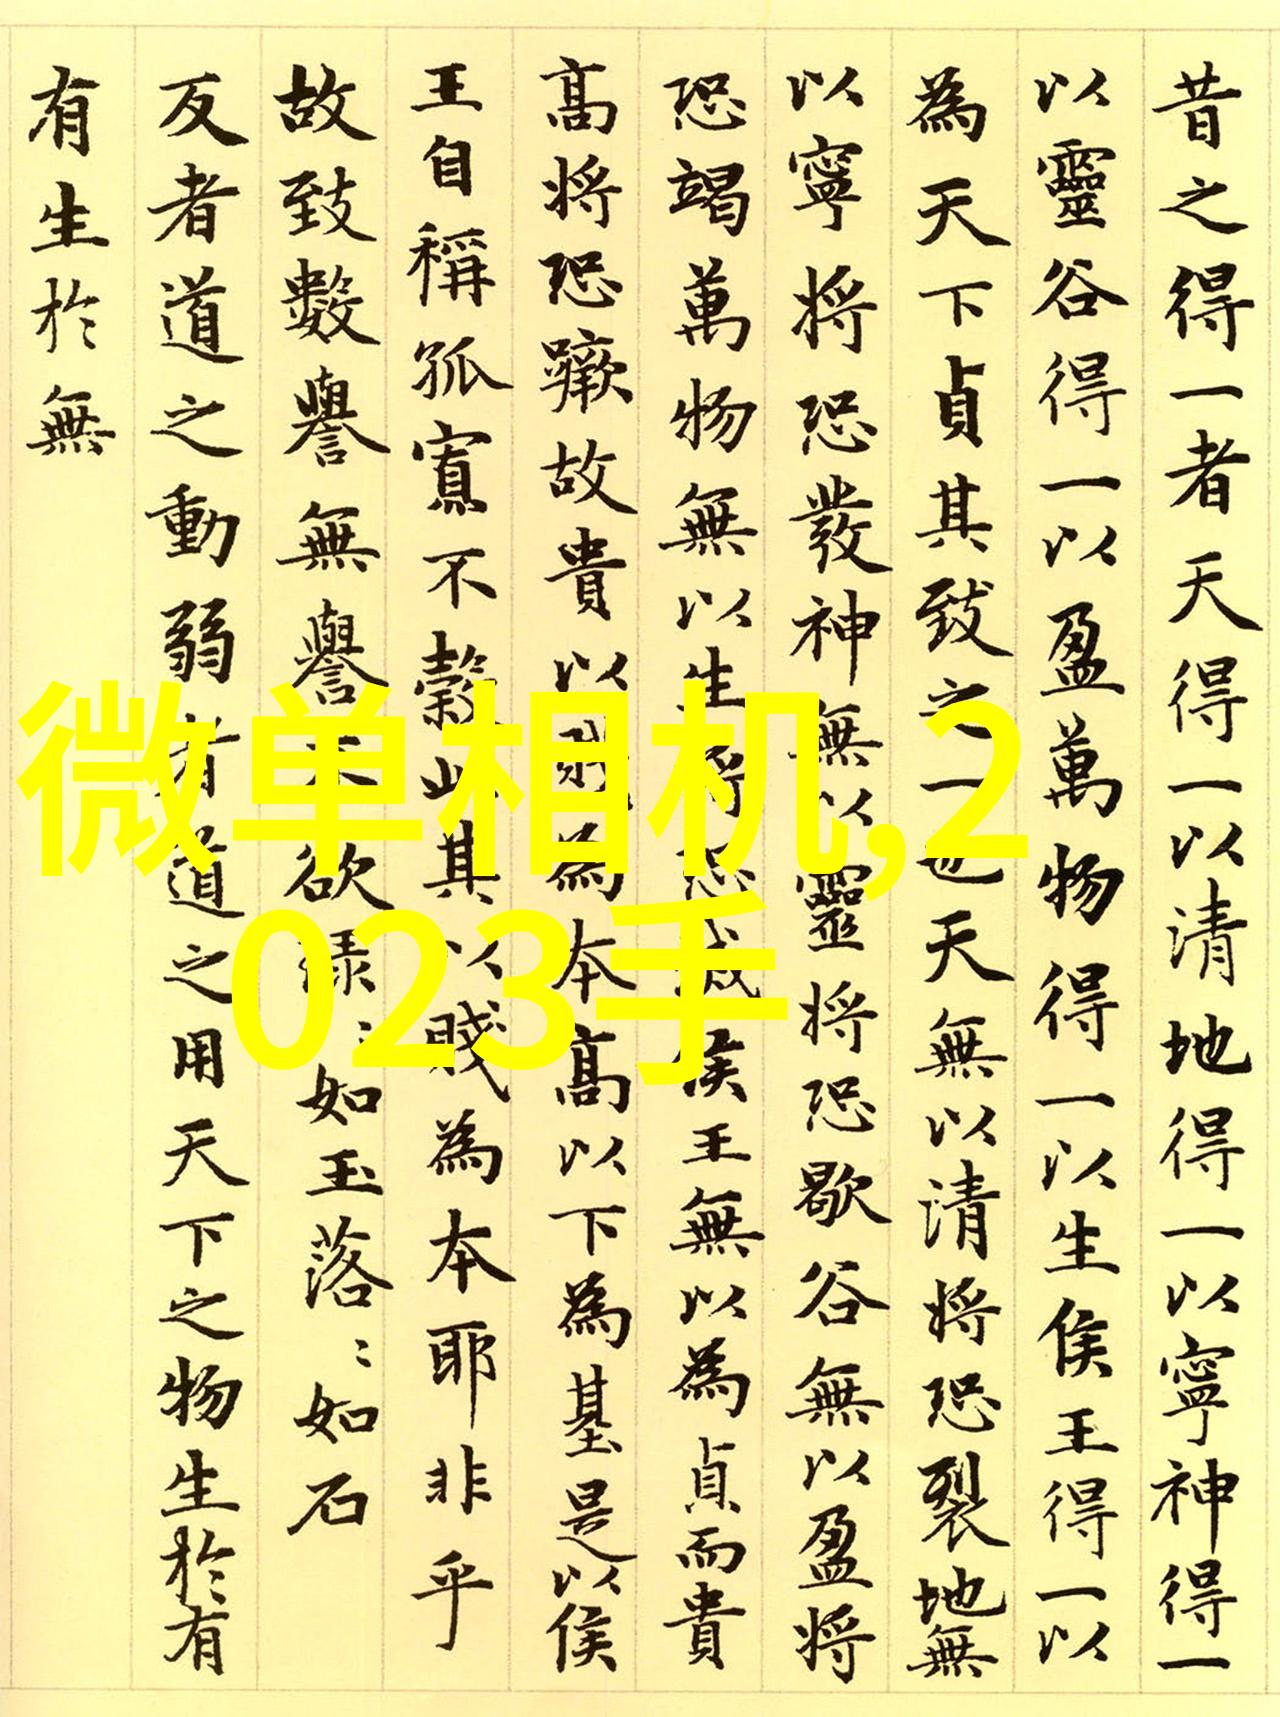 昔之得一者天得一以清地得一以寧神得一
以靈谷得一以盈萬物得一以生侯王得一以
為天下貞其致之一也天無以清將恐裂地無
以寧將恐發神無以靈將恐歇谷無以盈將
恐竭萬物無以生將恐滅侯王無以為貞而貴
高將恐蹶故貴以賤為本高以下為基是以侯
王自稱孤寡不穀此其以賤為本耶非乎
故致數譽無譽不欲琭〻如玉落〻如石
反者道之動弱者道之用天下之物生於有
有生於無
微单相机,2
023手